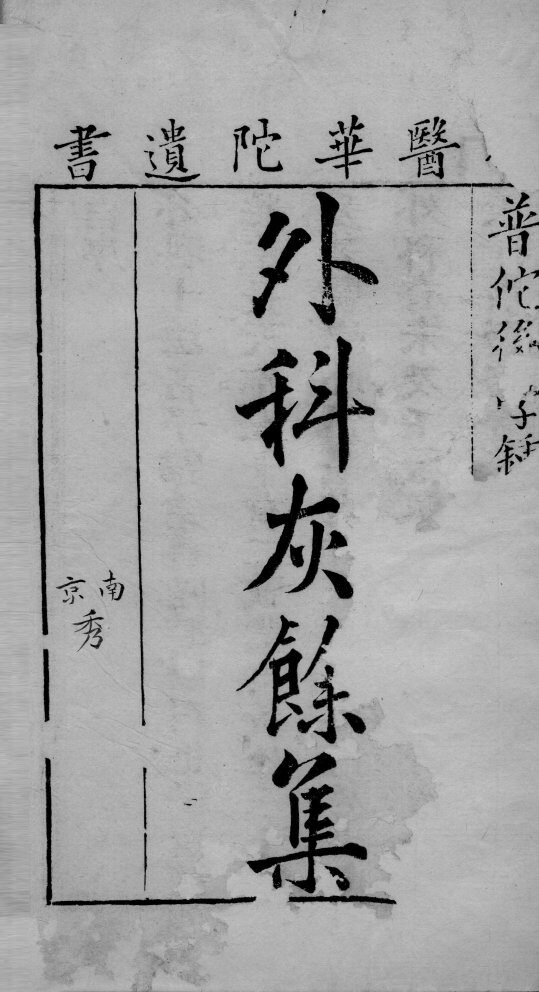 醫華陀遺書
普佗後
外科灰餘集
南京
秀